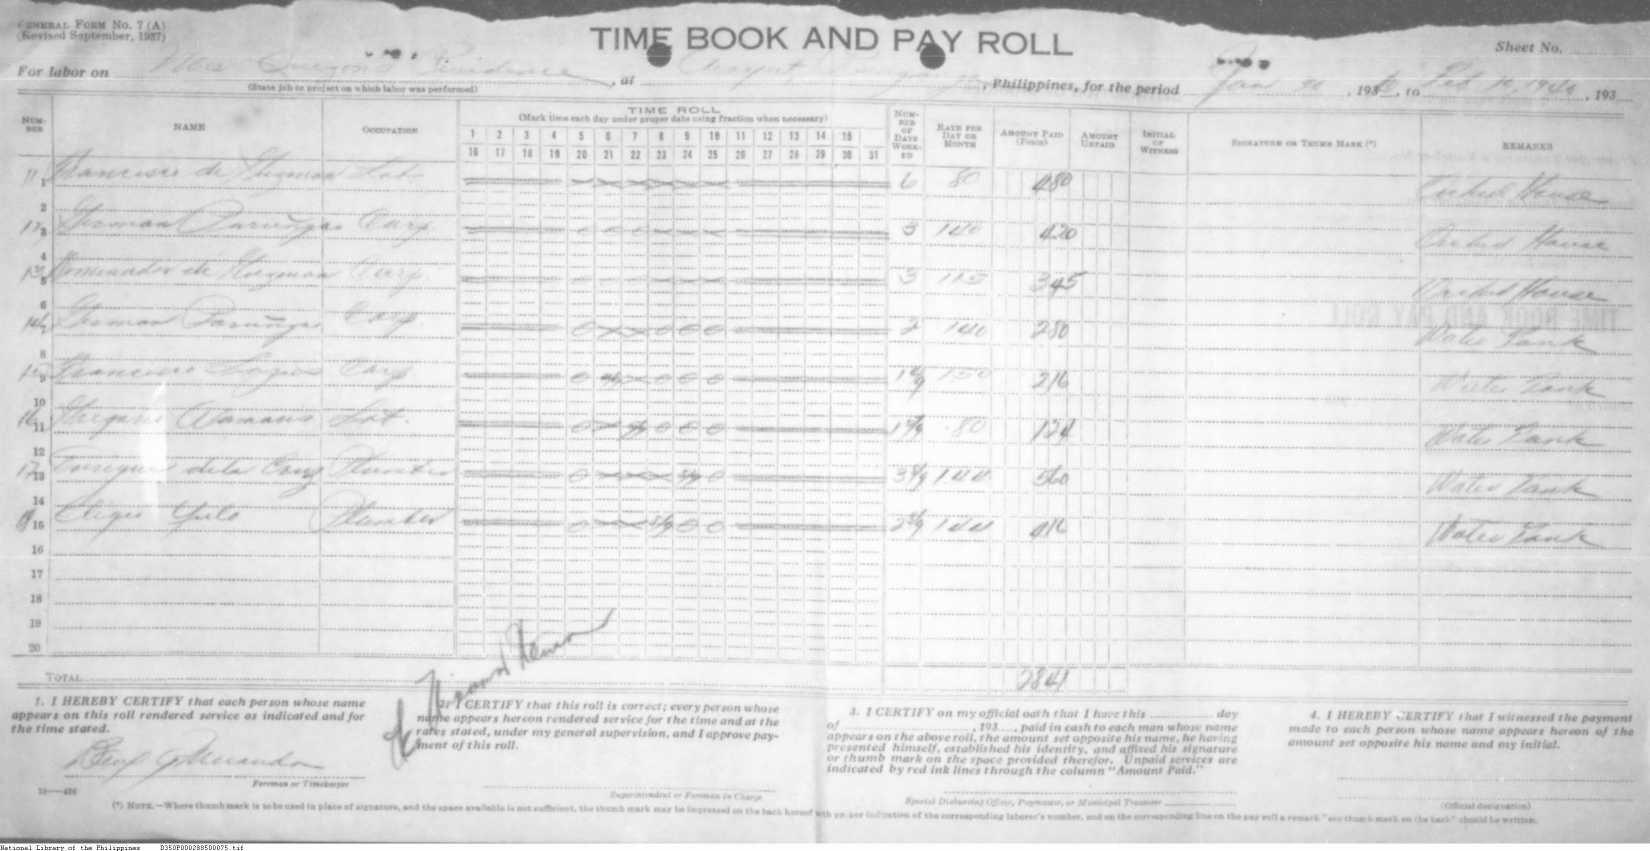 GENERAL FORM NO. 7 (A)
(Revised September, 1937)
TIME BOOK AND PAY ROLL
Sheet No.
For labor on Mrs Quezon's Residence, at Arayat Pampanga, Philippines, for the period Jan 30, 193, to Feb 10, 1940, 193
(State job or project on which labor was performed)
NUMBER NAME OCCUPATION TIME ROLL NUMBER OF DAYS WORKED RATE PER DAY OR MONTH AMOUNT PAID (Pesos) AMOUNT UNPAID INITIAL OF WITNESS SIGNATURE OR THUMB MARK (*) REMARKS
(Mark time each day under proper date using fraction when necessary)
1 2 3 4 5 6 7 8 9 10 11 12 13 14 15
16 17 18 19 20 21 22 23 24 25 26 27 28 29 30 31
11 1 Francisco de Guzman Lab. 6 80 480 Orchid House
2
12 3 German Paruñgao Carp. 3 140 420 Orchid House
4
13 5 de Guzman Carp. 3 115 345 Orchid House
6
14 7 German Paruñgao Carp. 2 140 280 Water Tank
8
15 9 Francisco Carp 150 216 Water Tank
10
16 11 Lab. 80 124 Water Tank
12
17 13 Enrique dela Cruz Plumber 144 560 Water Tank
14
15 Yulo Plumber 144 416 Water Tank
16
17
18
19
20
TOTAL 2841
1. I HEREBY CERTIFY that each person whose name
appears on this roll rendered service as indicated and for
the time stated.
Foreman or Timekeeper
2. I CERTIFY that this roll is correct; every person whose
name appears hereon rendered service for the time and at the
rates stated, under my general supervision, and I approve pay-
ment of this roll.
Superintendent or Foreman in Charge
3. I CERTIFY on my official oath that I have this day
of , 193 , paid in cash to each man whose name
appears on the above roll, the amount set opposite his name, he having
presented himself, established his identity, and affixed his signature
or thumb mark on the space provided therefor. Unpaid services are
indicated by red ink lines through the column "Amount Paid."
Special Disbursing Officer, Paymaster, or Municipal Treasurer
4. I HEREBY CERTIFY that I witnessed the payment
made to each person whose name appears hereon of the
amount set opposite his name and my initial.
(Official designation)
(*) NOTE.—Where thumb mark is to be used in place of signature, and the space available is not sufficient, the thumb mark may be impressed on the back hereof with proper indication of the corresponding laborer's number, and on the corresponding line on the pay roll a remark "see thumb mark on the back" should be written.
National Library of the Philippines D350P000288500075.tif